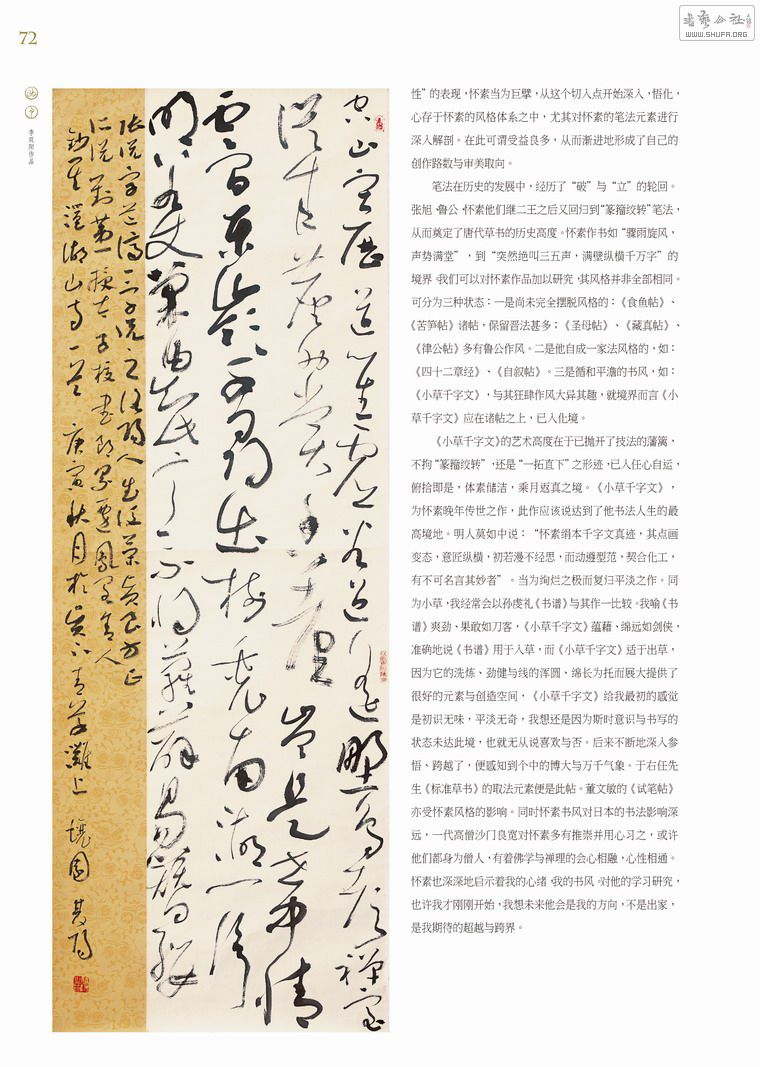 72
書藝公社
WWW.SHUFA.ORG
空山寂歷道心生虛谷迢遙野鳥聲禪室
從來塵外賞香臺豈是世中情
雲間東嶺千尋出樹裏南湖一片
明若使巢由知此意不將蘿薜易簪纓
張說字道濟一字說之洛陽人
㴩湖山寺一首 庚寅秋月於
性”的表现，怀素当为巨擘，从这个切入点开始深入，悟化，
心存于怀素的风格体系之中，尤其对怀素的笔法元素进行
深入解剖。在此可谓受益良多，从而渐进地形成了自己的
创作路数与审美取向。
笔法在历史的发展中，经历了“破”与“立”的轮回。
张旭、鲁公、怀素他们继二王之后又回归到“篆籀绞转”笔法，
从而奠定了唐代草书的历史高度。怀素作书如“骤雨旋风，
声势满堂”，到“突然绝叫三五声，满壁纵横千万字”的
境界。我们可以对怀素作品加以研究，其风格并非全部相同。
可分为三种状态：一是尚未完全摆脱风格的：《食鱼帖》、
《苦笋帖》诸帖，保留晋法甚多；《圣母帖》、《藏真帖》、
《律公帖》多有鲁公作风。二是他自成一家法风格的，如：
《四十二章经》、《自叙帖》。三是循和平澹的书风，如：
《小草千字文》，与其狂肆作风大异其趣，就境界而言《小
草千字文》应在诸帖之上，已入化境。
《小草千字文》的艺术高度在于已抛开了技法的藩篱，
不拘“篆籀绞转”，还是“一拓直下”之形迹，已入任心自运，
俯拾即是，体素储洁，乘月返真之境。《小草千字文》，
为怀素晚年传世之作，此作应该说达到了他书法人生的最
高境地。明人莫如中说：“怀素绢本千字文真迹，其点画
变态，意匠纵横，初若漫不经思，而动遵型范，契合化工，
有不可名言其妙者”。当为绚烂之极而复归平淡之作。同
为小草，我经常会以孙虔礼《书谱》与其作一比较。我喻《书
谱》爽劲、果敢如刀客，《小草千字文》蕴藉、绵远如剑侠，
准确地说《书谱》用于入草，而《小草千字文》适于出草，
因为它的洗炼、劲健与线的浑圆、绵长为托而展大提供了
很好的元素与创造空间，《小草千字文》给我最初的感觉
是初识无味，平淡无奇，我想还是因为斯时意识与书写的
状态未达此境，也就无从说喜欢与否。后来不断地深入参
悟、跨越了，便感知到个中的博大与万千气象。于右任先
生《标准草书》的取法元素便是此帖。董文敏的《试笔帖》
亦受怀素风格的影响。同时怀素书风对日本的书法影响深
远，一代高僧沙门良宽对怀素多有推崇并用心习之，或许
他们都身为僧人，有着佛学与禅理的会心相融，心性相通。
怀素也深深地启示着我的心绪、我的书风。对他的学习研究，
也许我才刚刚开始，我想未来他会是我的方向，不是出家，
是我期待的超越与跨界。